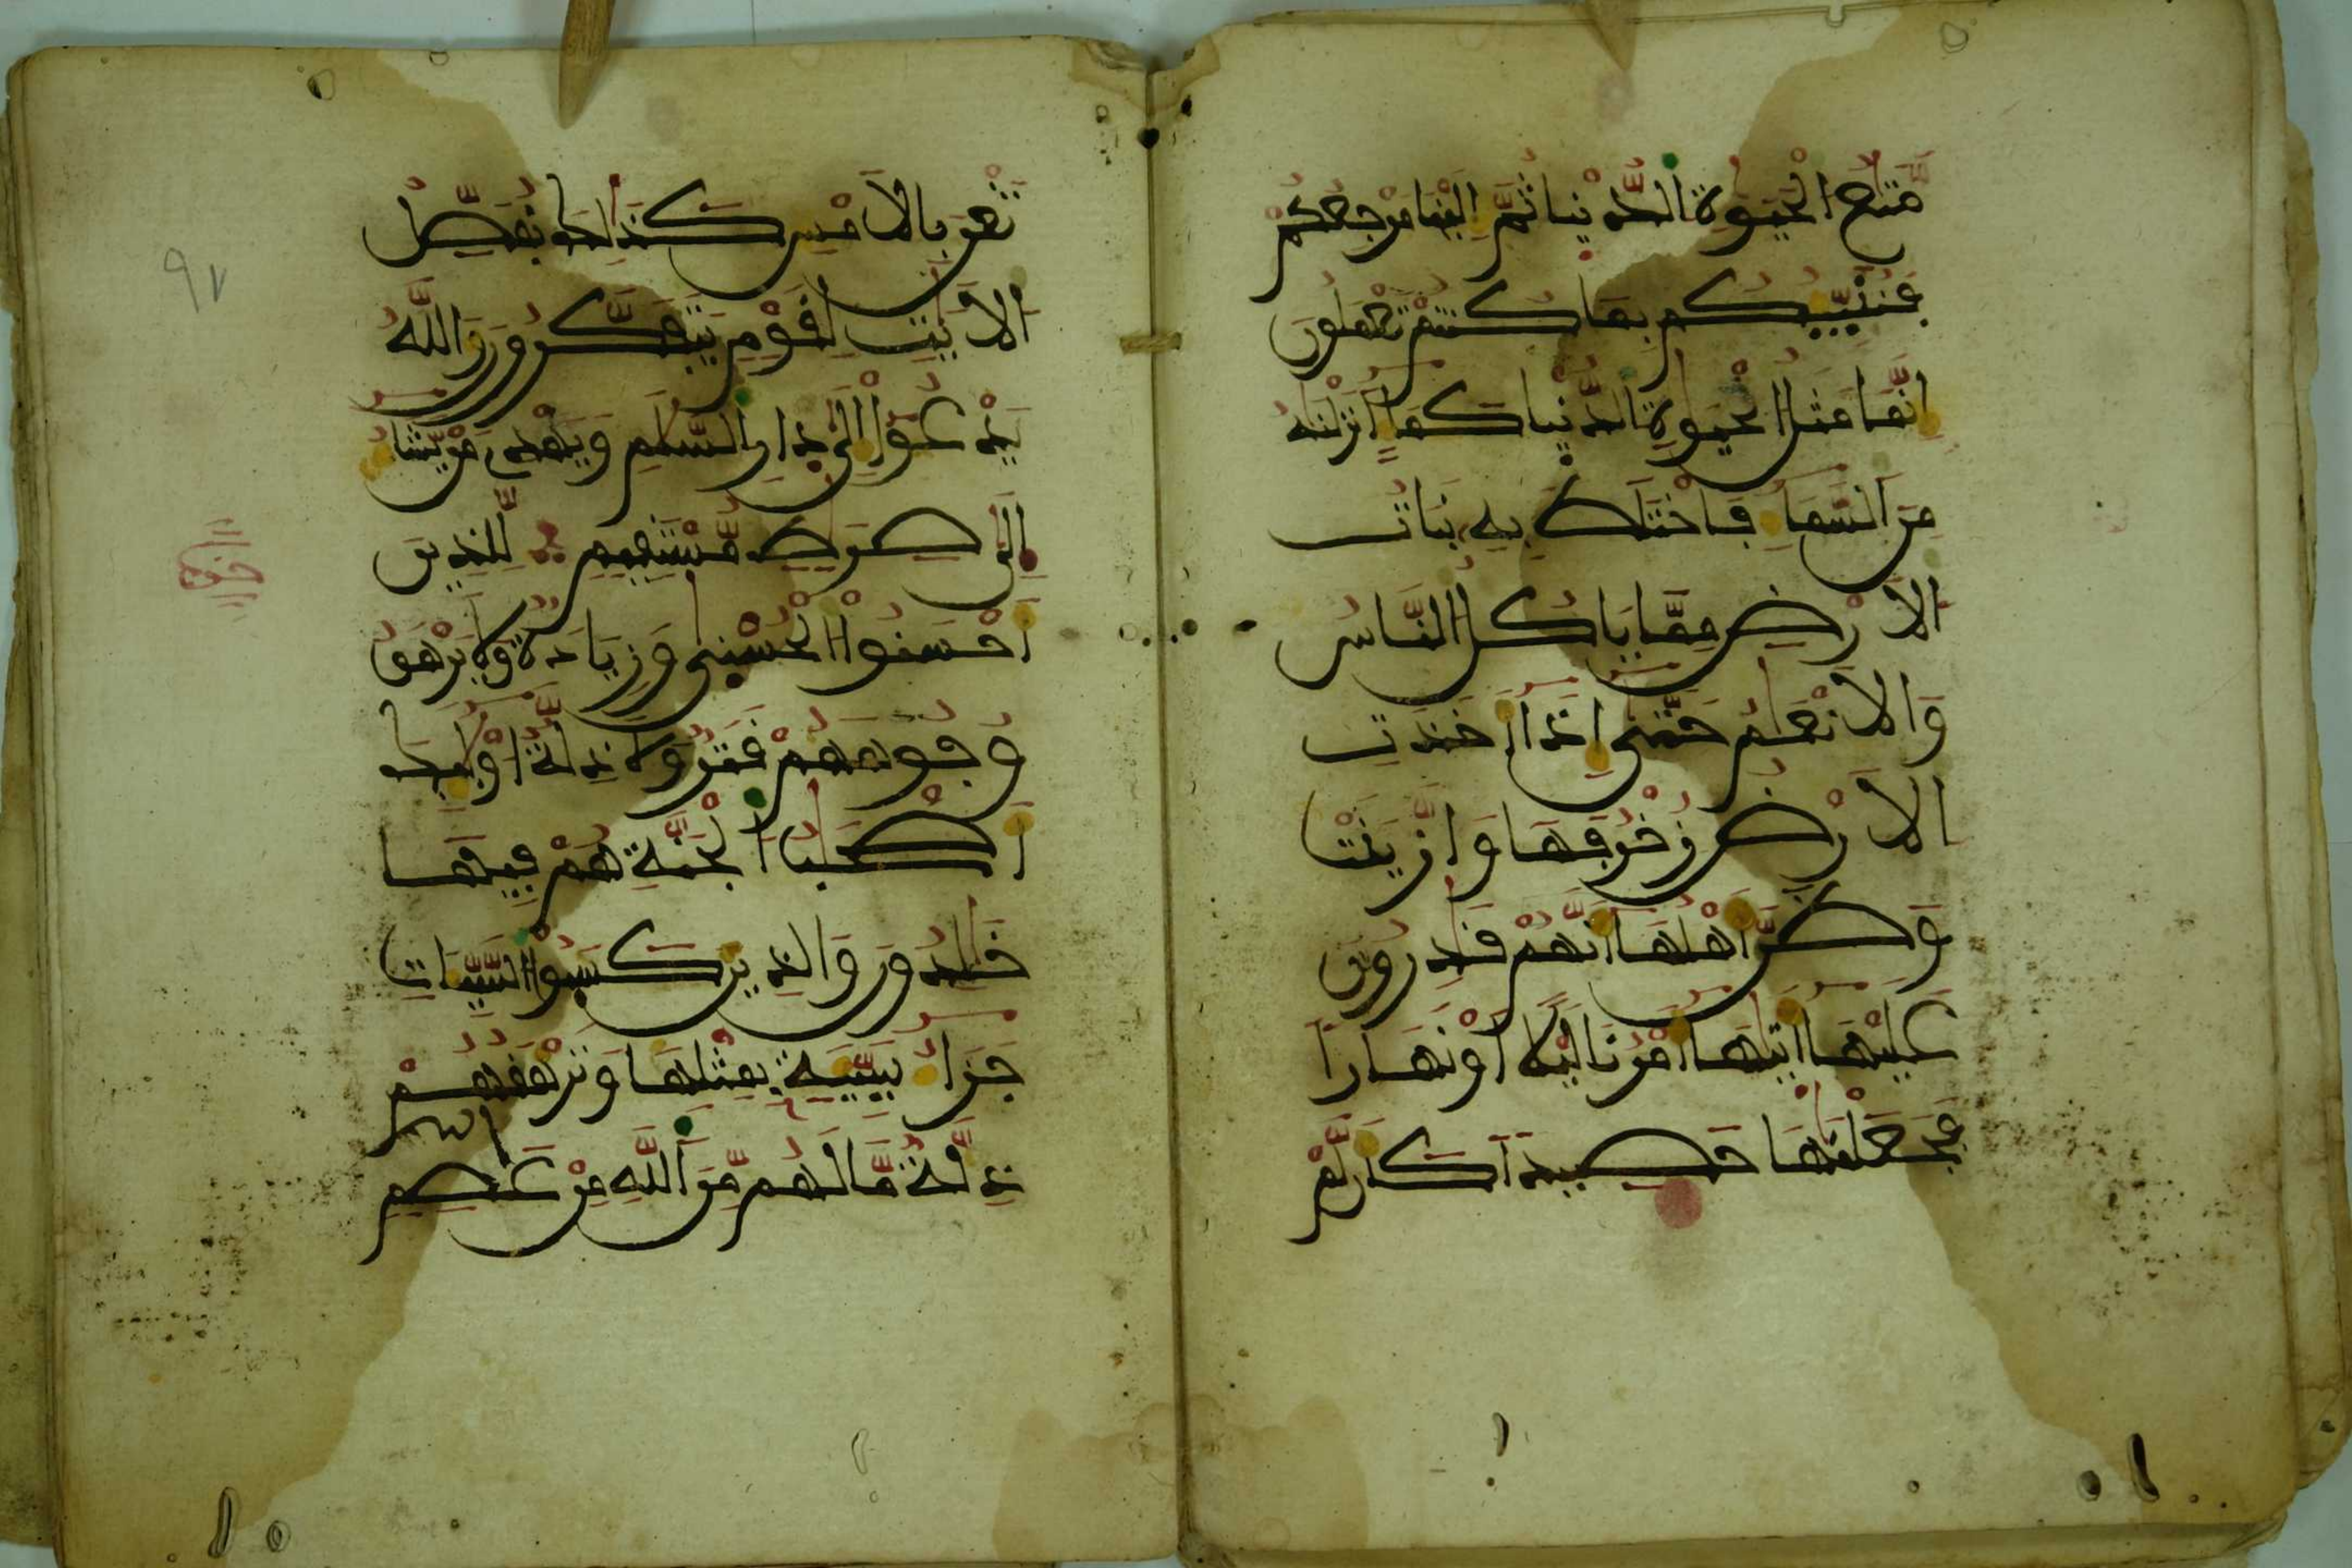 مَّتَٰعُ الْحَيَوٰةِ الدُّنْيَا ثُمَّ إِلَيْنَا مَرْجِعُكُمْ
فَنُنَبِّئُكُم بِمَا كُنتُمْ تَعْمَلُونَ
إِنَّمَا مَثَلُ الْحَيَوٰةِ الدُّنْيَا كَمَآءٍ اَنزَلْنَٰهُ
مِنَ السَّمَآءِ فَاخْتَلَطَ بِهِ نَبَاتُ
الْأَرْضِ مِمَّا يَاكُلُ النَّاسُ
وَالْأَنْعَٰمُ حَتَّىٰٓ إِذَآ أَخَذَتِ
الْأَرْضُ زُخْرُفَهَا وَازَّيَّنَتْ
وَظَنَّ أَهْلُهَآ أَنَّهُمْ قَٰدِرُونَ
عَلَيْهَآ أَتَىٰهَآ أَمْرُنَا لَيْلًا أَوْ نَهَارًا
فَجَعَلْنَٰهَا حَصِيدًا كَأَن لَّمْ
تَغْنَ بِالْأَمْسِ كَذَٰلِكَ نُفَصِّلُ
الْأَيَٰتِ لِقَوْمٍ يَتَفَكَّرُونَ وَاللَّهُ
يَدْعُوٓا إِلَىٰ دَارِ السَّلَٰمِ وَيَهْدِي مَنْ يَّشَآءُ
إِلَىٰ صِرَٰطٍ مُّسْتَقِيمٍ لِّلَّذِينَ
أَحْسَنُوا الْحُسْنَىٰ وَزِيَادَةٌ وَلَا يَرْهَقُ
وُجُوهَهُمْ قَتَرٌ وَلَا ذِلَّةٌ أُوْلَٰٓئِكَ
أَصْحَٰبُ الْجَنَّةِ هُمْ فِيهَا
خَٰلِدُونَ وَالَّذِينَ كَسَبُوا السَّيِّـَٔاتِ
جَزَآءُ سَيِّئَةٍ بِمِثْلِهَا وَتَرْهَقُهُمْ
ذِلَّةٌ مَّا لَهُم مِّنَ اللَّهِ مِنْ عَاصِمٍ
٩٧